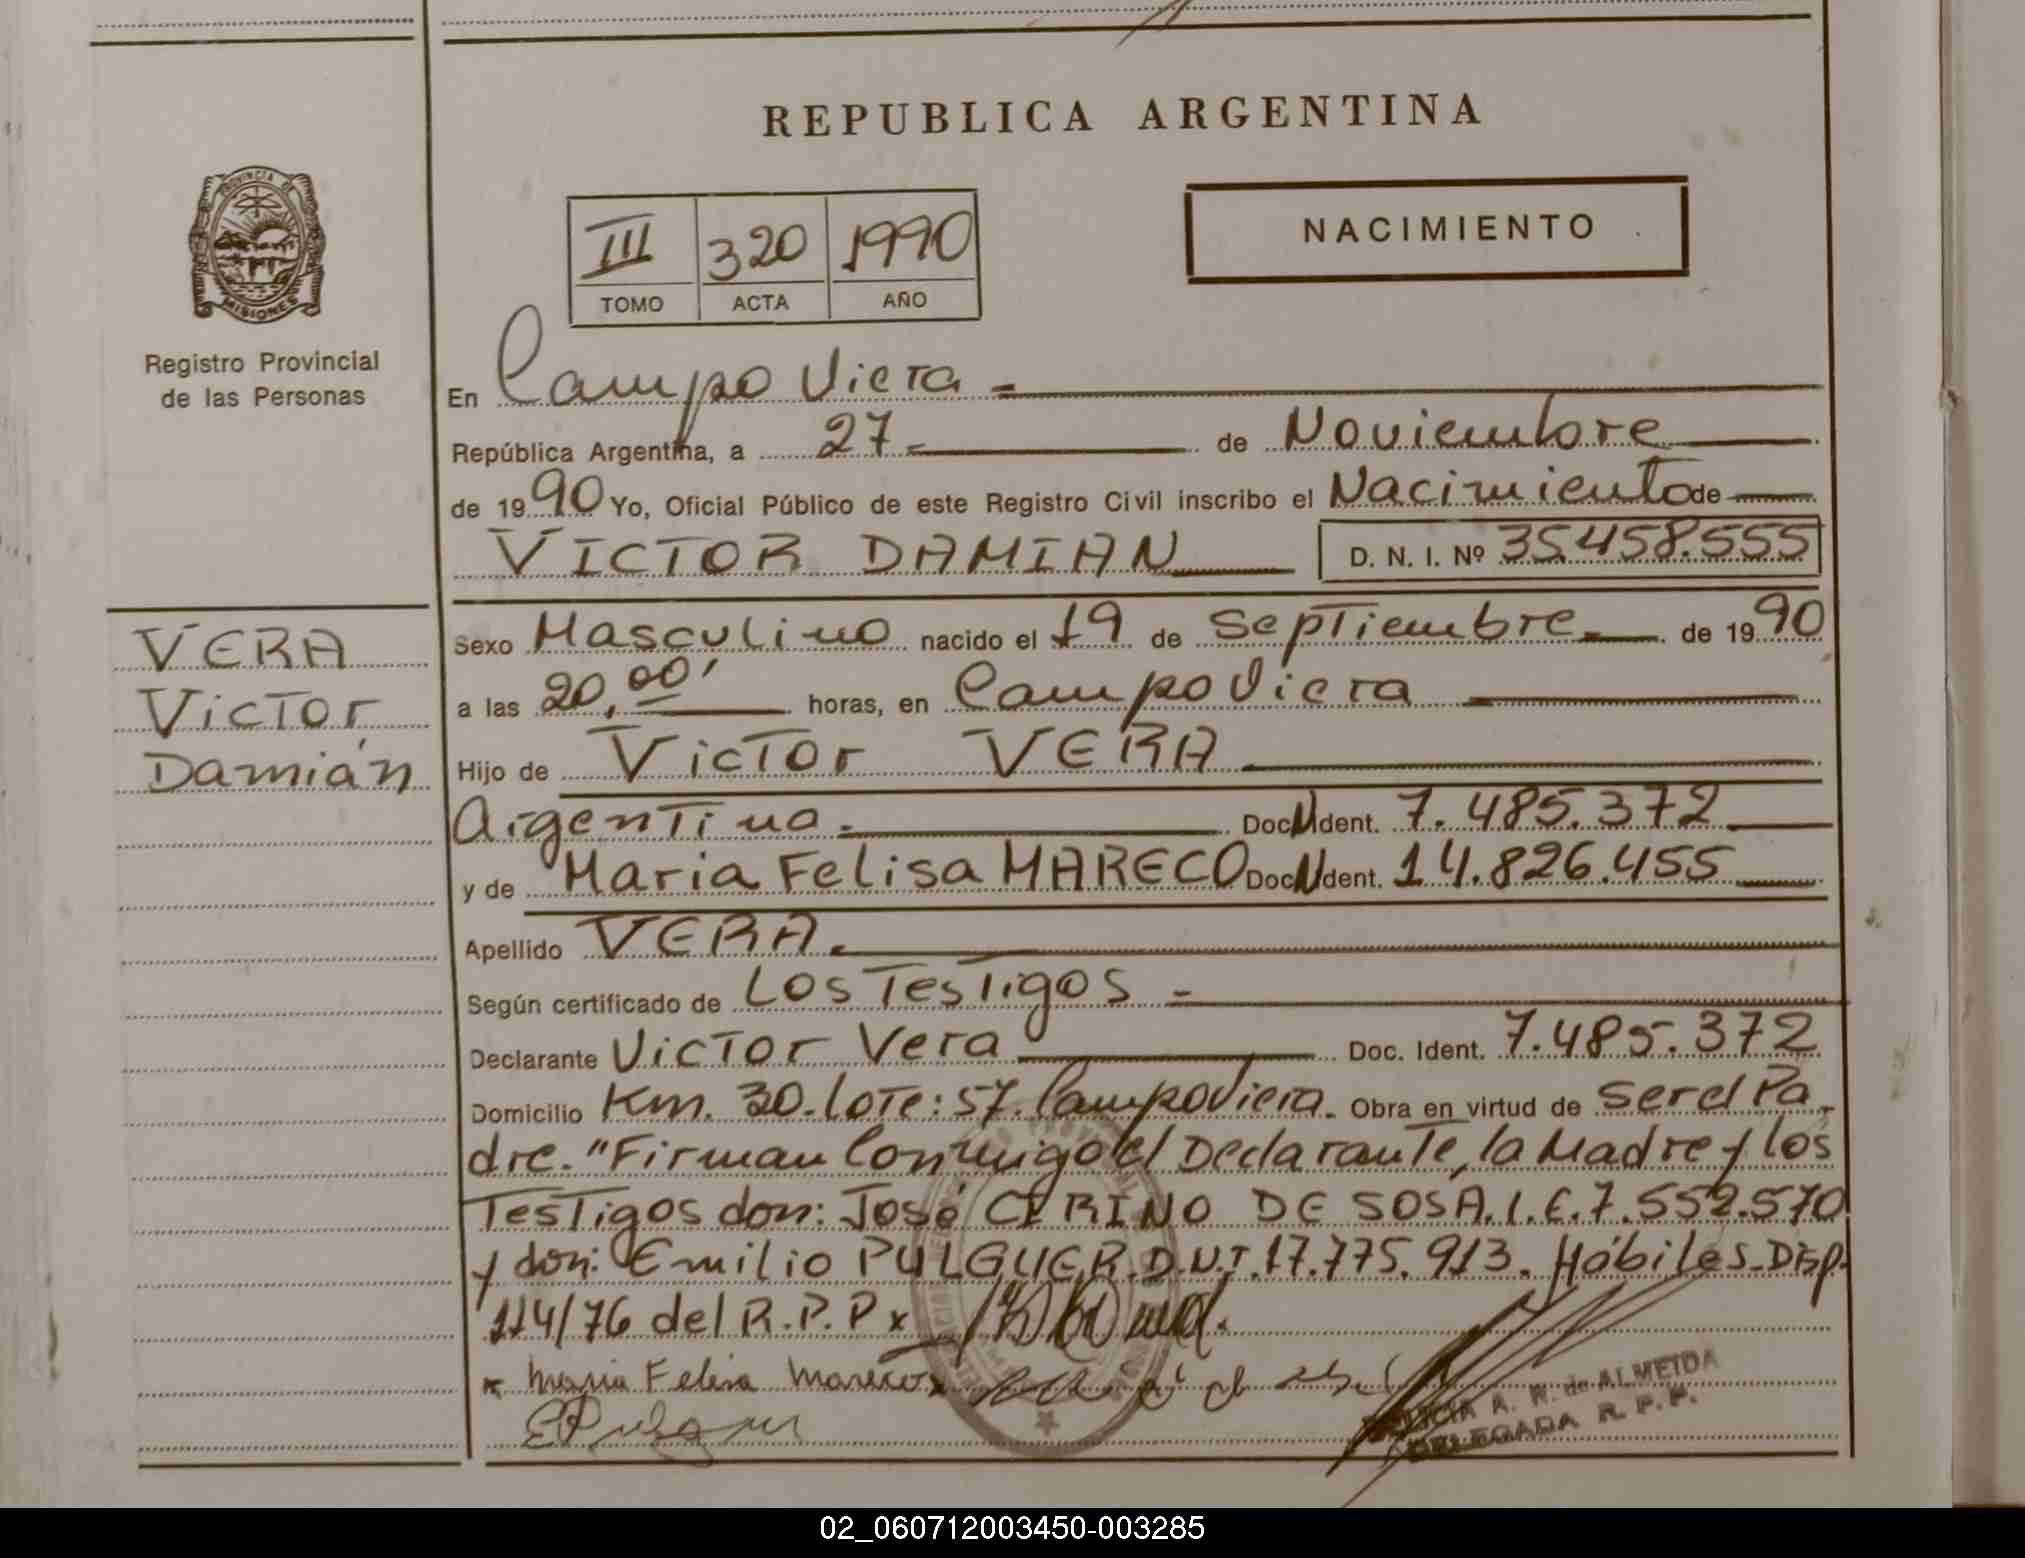 REPUBLICA ARGENTINA
PROVINCIA DE MISIONES
Registro Provincial
de las Personas
III 320 1990
TOMO ACTA AÑO
NACIMIENTO
En Campo Viera
República Argentina, a 27 de Noviembre
de 1990 Yo, Oficial Público de este Registro Civil inscribo el Nacimiento de
VICTOR DAMIAN D. N. I. Nº 35.458.555
VERA
Victor
Damián
Sexo Masculino nacido el 19 de Septiembre de 1990
a las 20,00' horas, en Campo Viera
Hijo de Victor VERA
Argentino. Doc. Ident. 7.485.372
y de Maria Felisa MARECO Doc. Ident. 14.826.455
Apellido VERA.
Según certificado de Los Testigos -
Declarante Victor Vera Doc. Ident. 7.485.372
Domicilio Km. 30. Lote: 57. Campo Viera. Obra en virtud de ser el Pa
dre. "Firman Conmigo el Declarante, la Madre y los
Testigos don: José CIRINO DE SOSA. I.E. 7.552.570
y don: Emilio PULGUER. D.N.I. 17.775.913. Hábiles. Disp.
114/76 del R.P.P x
x Maria Felisa Mareco x
A. R. de ALMEIDA
DELEGADA R. P. P.
02_060712003450-003285